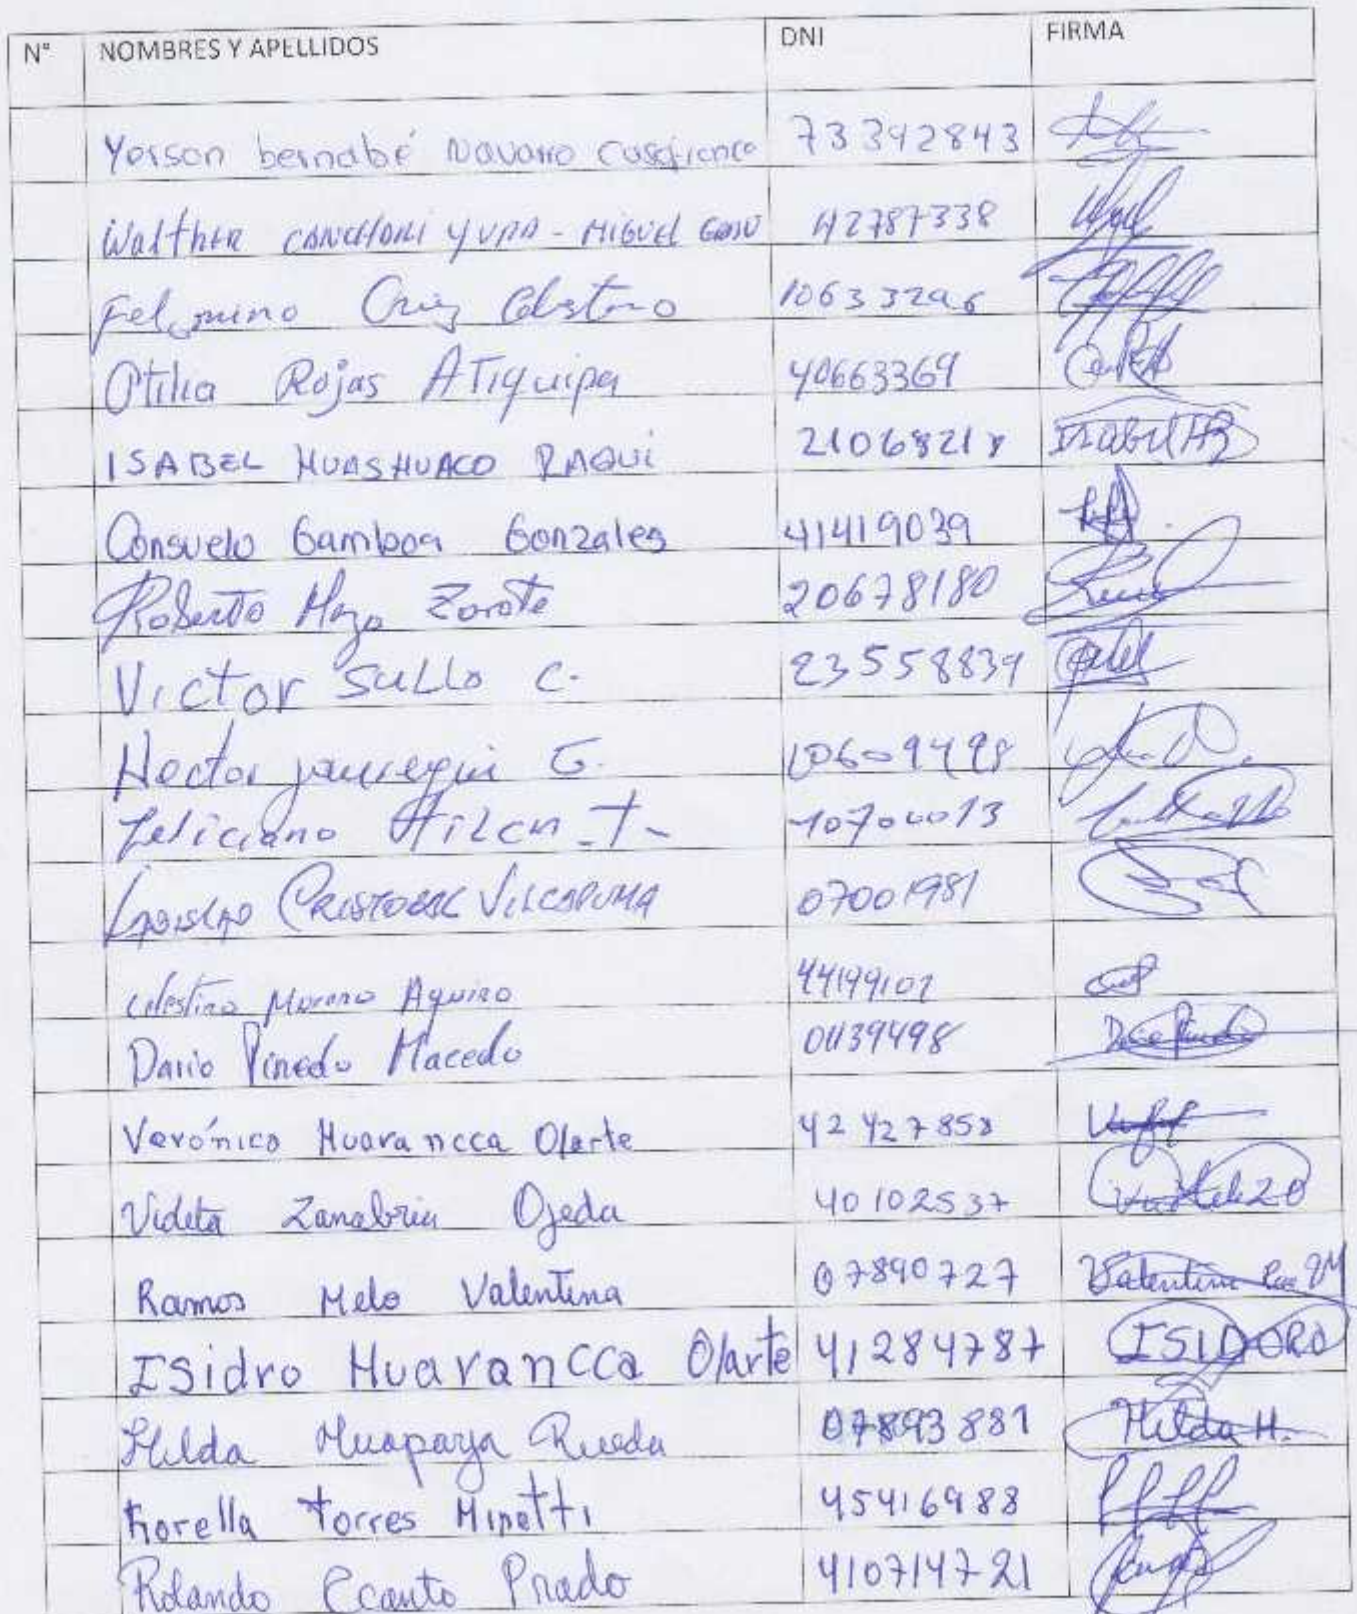 N° NOMBRES Y APELLIDOS DNI FIRMA
Yerson bernabé Navarro Casafranca 73392843
Walther CANCHARI YUPA - MIGUEL 42787338
Felomino Cruz Celestino 10633296
Otilia Rojas ATiquipa 40663369
ISABEL HUASHUACO RAQUI 21068218
Consuelo Gamboa Gonzales 41419039
Roberto Meza Zarate 20678180
Victor SULLO C. 23558839
Hector jauregui G. 10609498
Feliciano 
CRISTOBAL VILCAPUMA 07001981
Celestino Moreno Aquino 44199107
Dario Pinedo Macedo 01139498
Verónica Huarancca Olarte 42427858
Violeta Zanabria Ojeda 40102537
Ramos Melo Valentina 07890727 Valentina
Isidro Huarancca Olarte 41284787 ISIDORO
Hilda Huapaya Rueda 07893881 Hilda H.
Fiorella Torres Minetti 45416988
Rolando Ccanto Prado 410714721